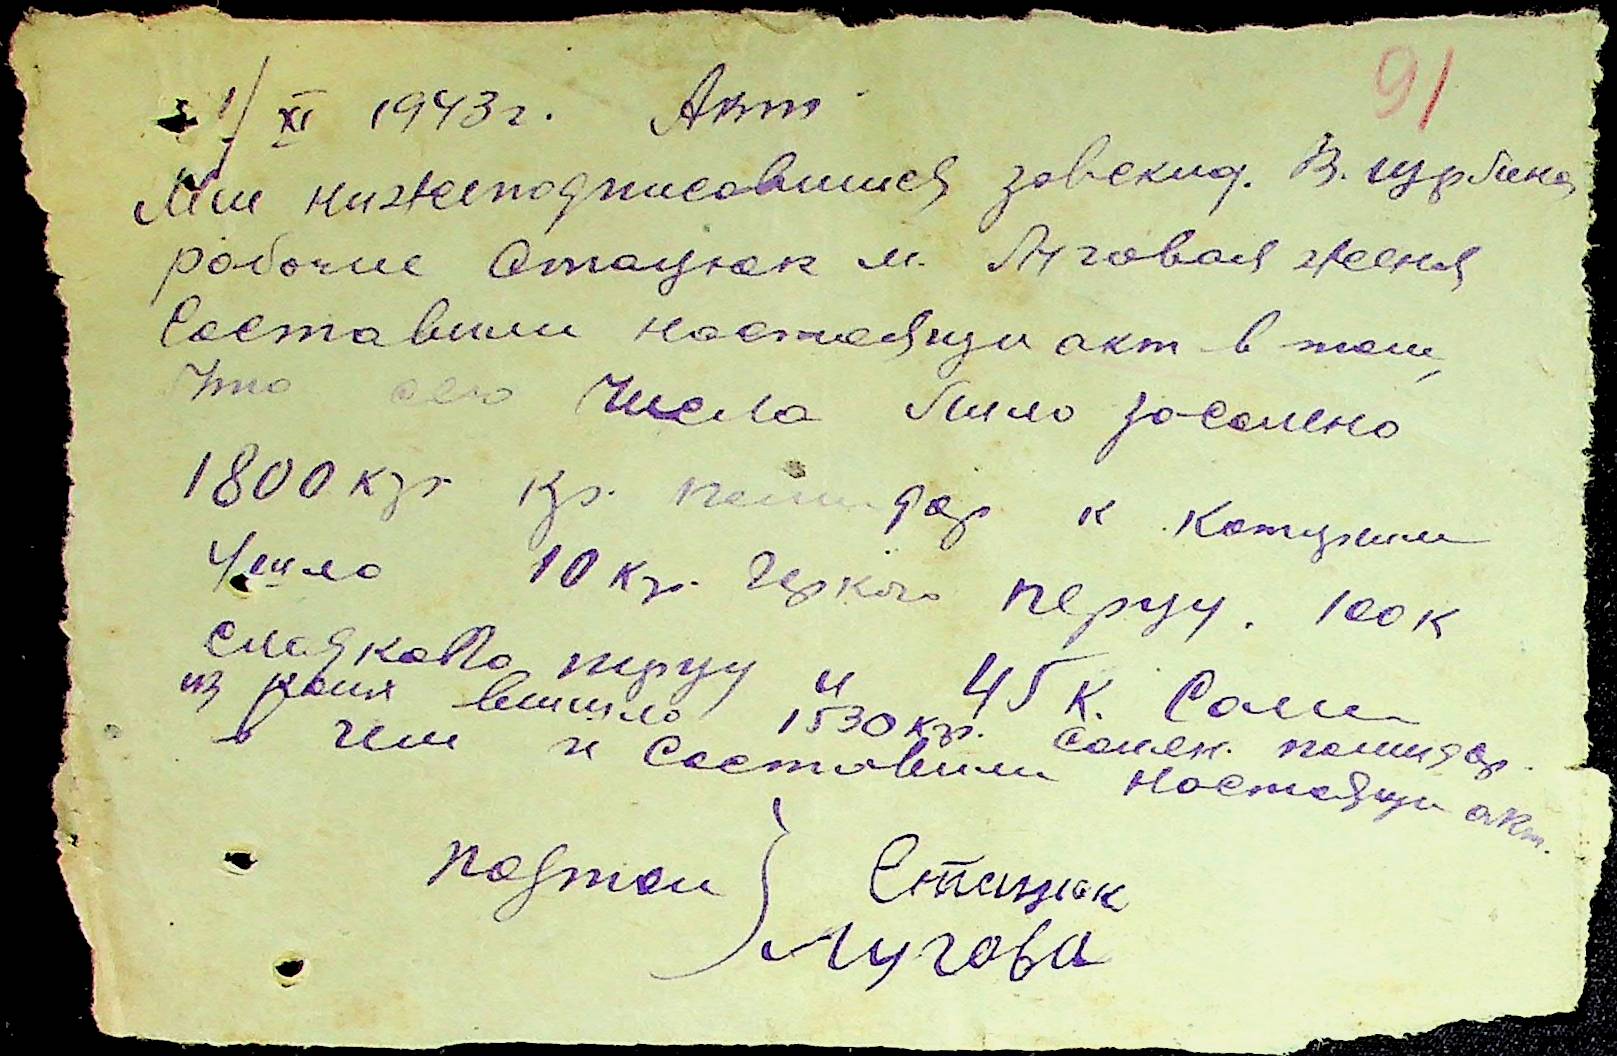 91
1/XI 1943г. Акт
Ми нижеподписовшиися завсклад. В. Щурбина
робочие Стацюк м. Луговая Женя
Составили ностоящи акт в том,
Что сего Числа било засолено
1800 кгр. кр. помидор к Котурим
Ушло 10 кгр. Геркого перцу. 100 к
сладкаво перцу и 45 к. Соли
из коия вишло 1530 кгр. солен. помидор.
в чем и составили ностоящи акт.
Стацюк
Лугова